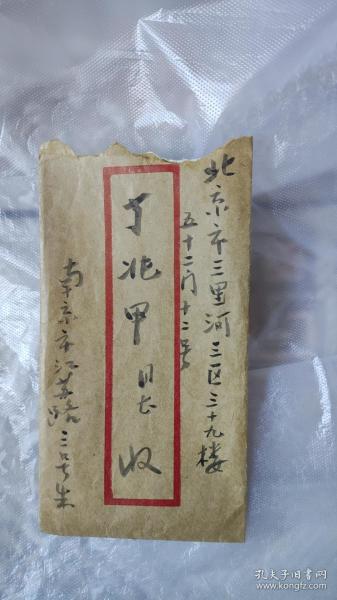 北京市三里河三区三十九楼
五十二门十二号
丁兆甲 同志 收
南京市江苏路三号朱
孔夫子旧书网
www.kongfz.com